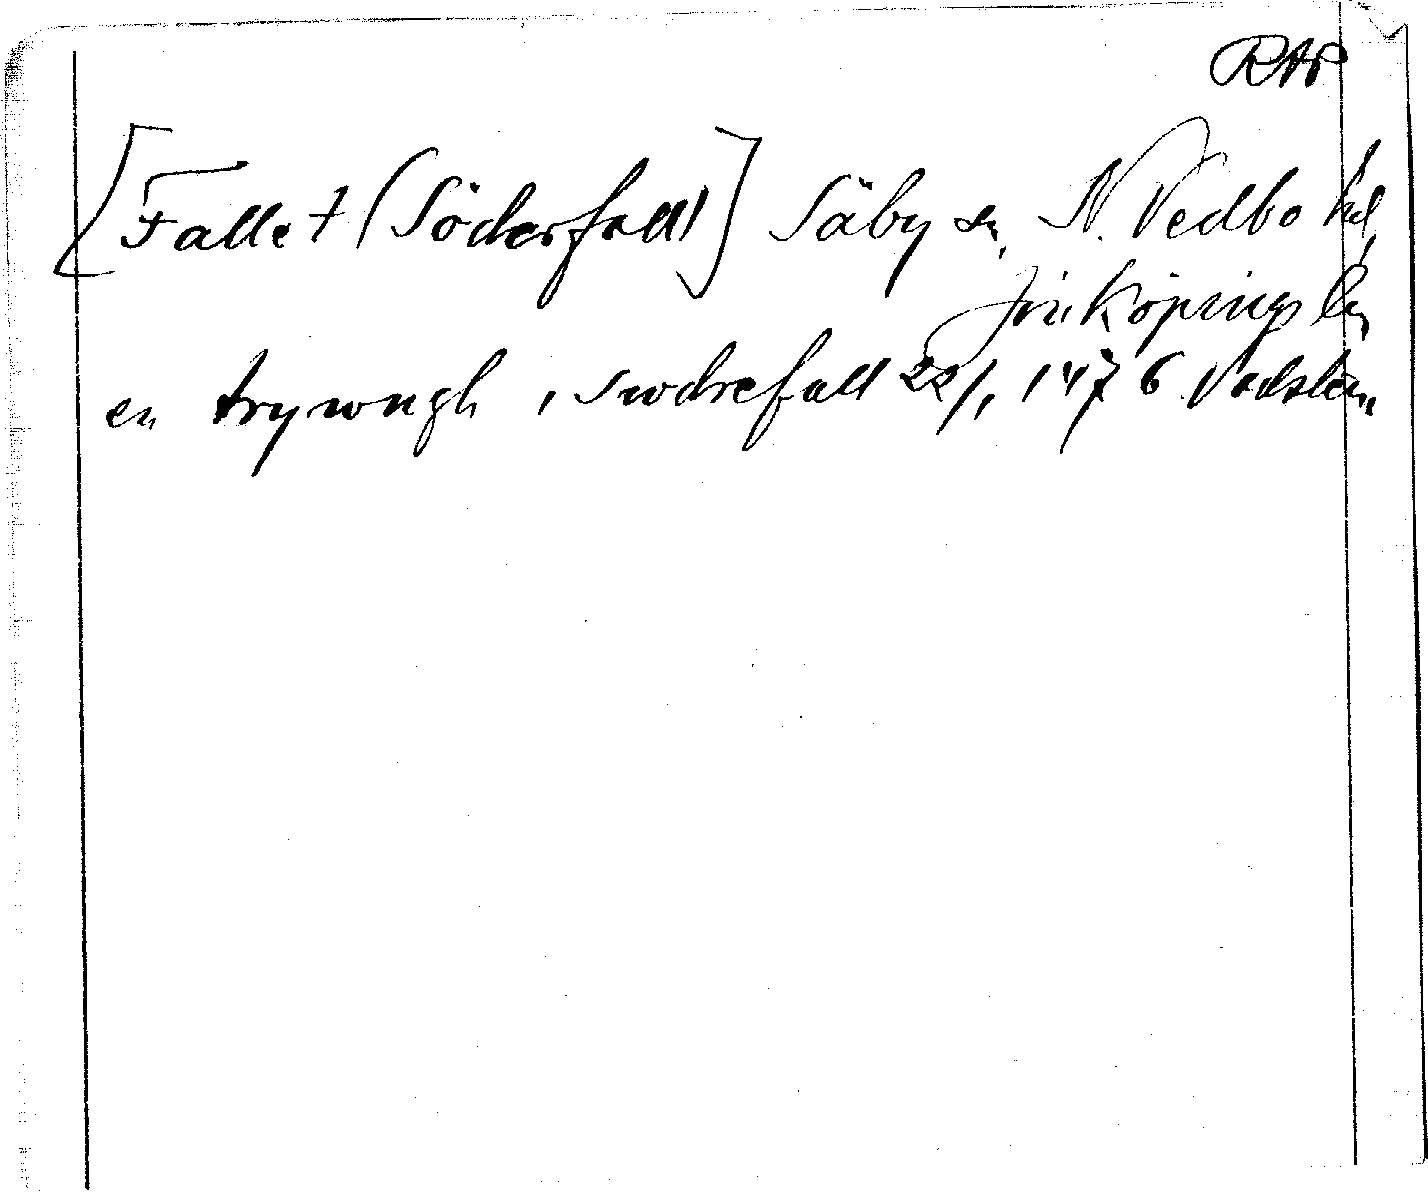 RAP
[Fallet (Söderfall)] Säby sn, N. Vedbo hd,
Jönköpings län
en trywngh i swdrefall 22/1 1476 Vadsten.